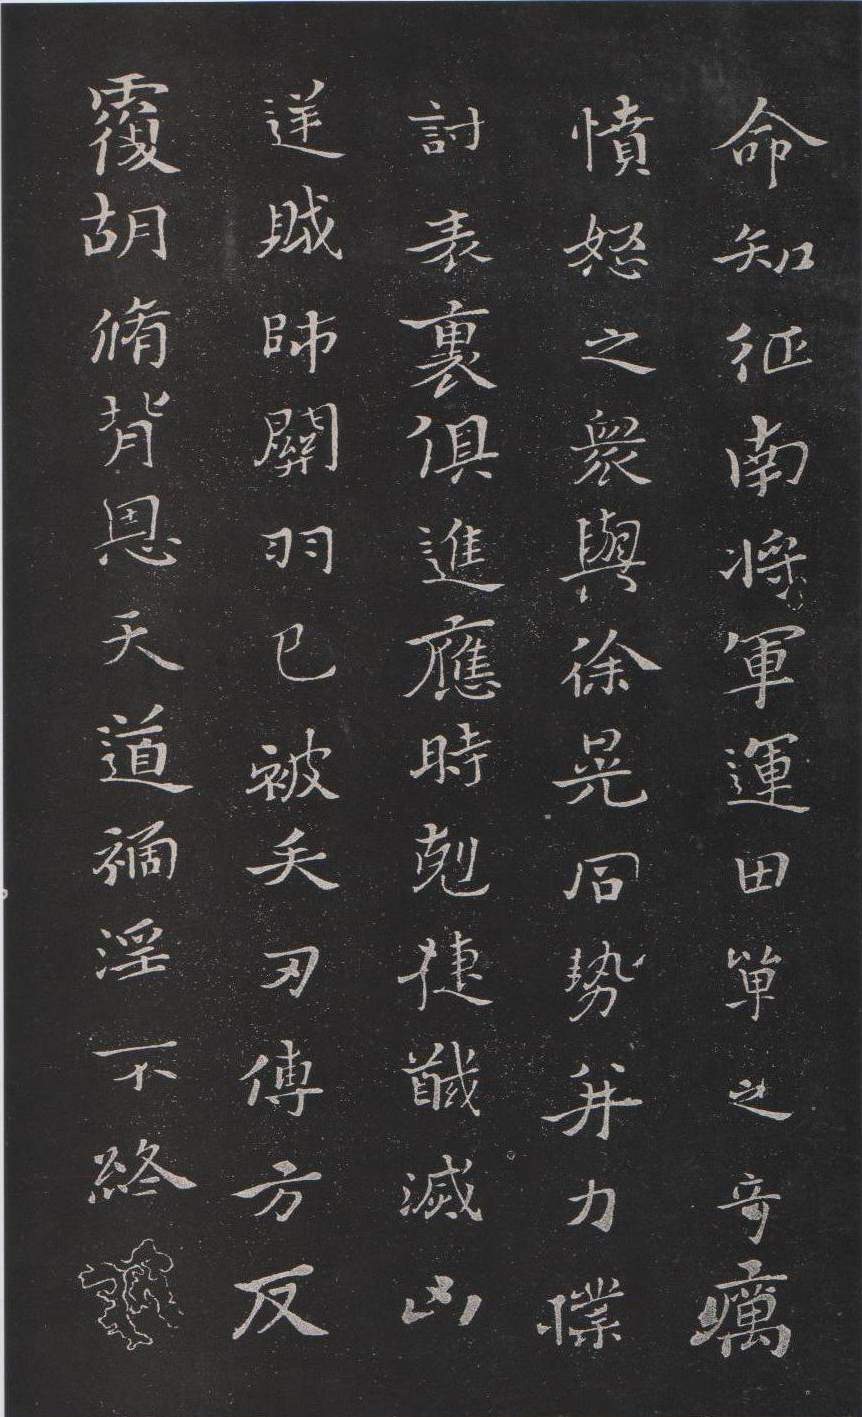 命知征南將軍運田單之奇厲
憤怒之眾與徐晃同勢并力撲
討表裏俱進應時剋捷馘滅凶
逆賊帥關羽已被矢刃傅方反
覆胡脩背恩天道禍淫不終